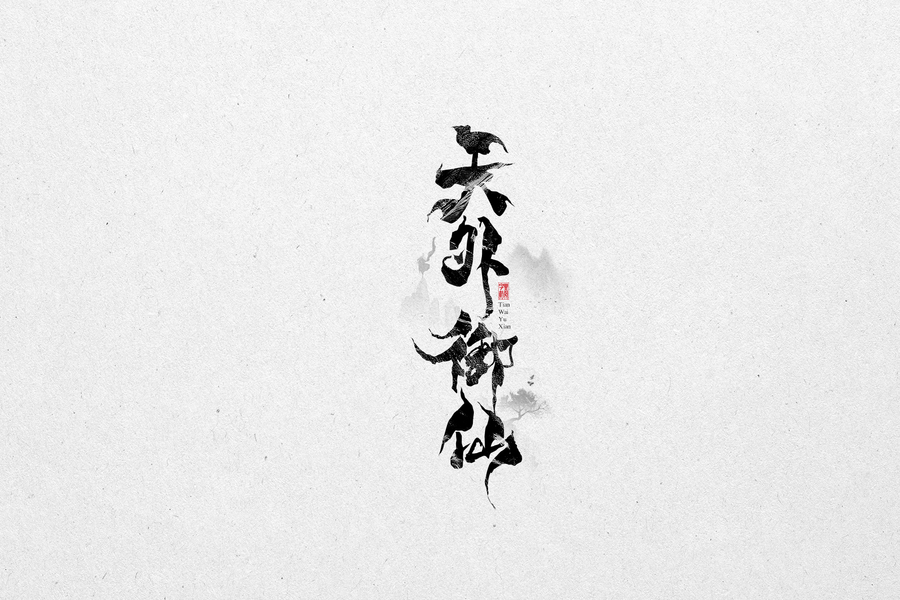 天外御仙
Tian
Wai
Yu
Xian